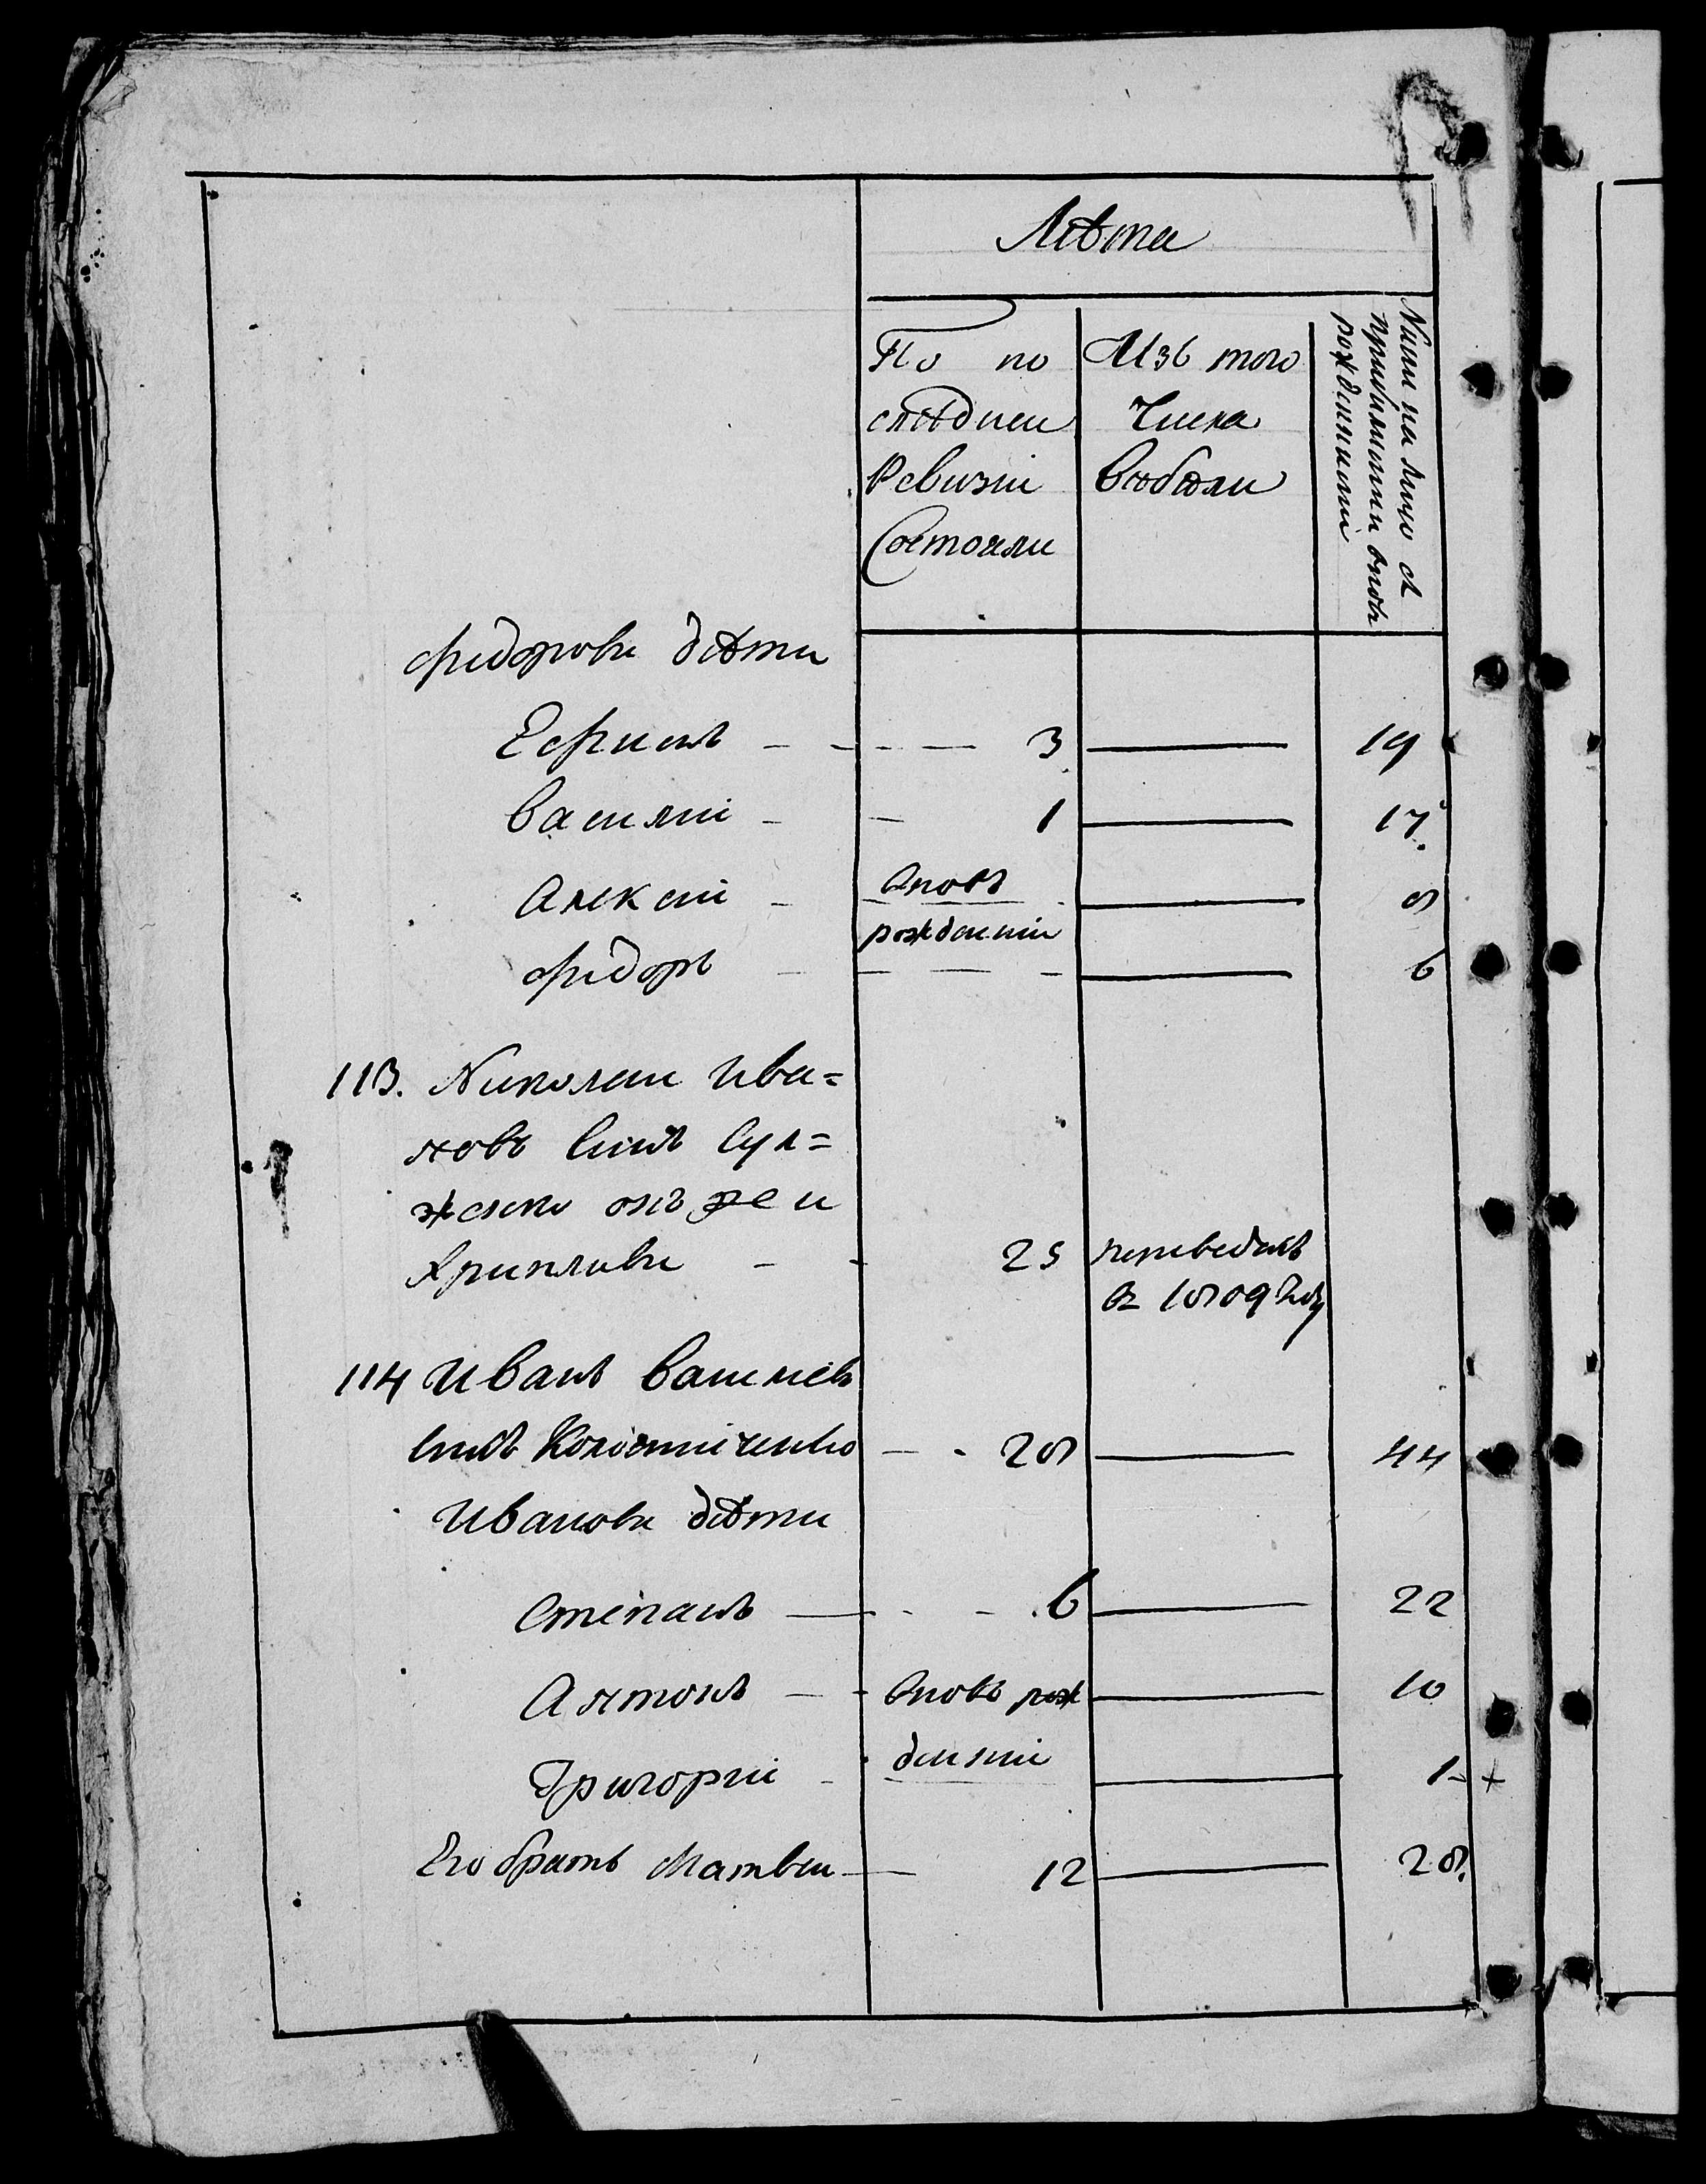 Лѣта
По по
слѣднеи
Ревизіи
Состояли
Изъ того
Числа
выбыли
Ныни на лицо съ
прибылыми вновь
рожденными
Фидорови дѣти
Ефимъ - - - - 3 — 19
Василии - - 1 — 17.
Алексіи - вновь — 8
рожденніи
Фидоръ - - - - — 6
113. Николаи Ива=
новъ сынъ Сул=
женко онъ же и
Хрипливи - - 25 переведенъ
въ 1809 году
114 Иванъ Васильевъ
сынъ Коломіиченко - - 28 — 44
Иванови дѣти
Степанъ — - - 6 — 22
Антонъ - - вновь рож — 10
денніи
Григоріи - — 1 - +
Его братъ Матвеи — 12 — 28.